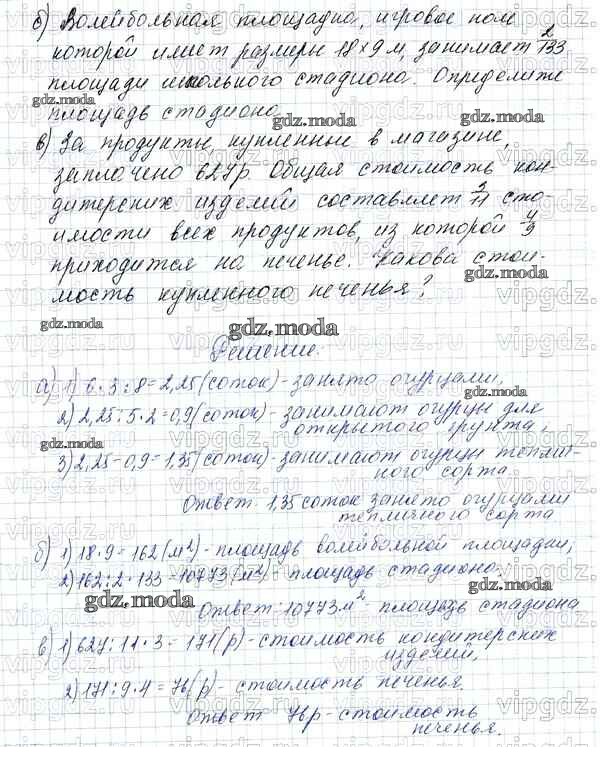 б) Волейбольная площадка, игровое поле
которой имеет размеры 18×9 м, занимает 2/133
площади школьного стадиона. Определите
gdz.moda
площадь стадиона.
gdz.moda
в) За продукты, купленные в магазине,
заплачено 627 р. Общая стоимость кон-
дитерских изделий составляет 3/11 сто-
gdz.moda
имости всех продуктов, из которой 4/9
приходится на печенье. Какова стои-
gdz.moda
мость купленного печенья?
gdz.moda
gdz.moda
Решение.
а) 1) 6·3:8=2,25 (соток) - занято огурцами,
2) 2,25:5·2=0,9 (соток) - занимают огурцы для
gdz.moda
открытого грунта,
3) 2,25-0,9=1,35 (соток) - занимают огурцы теплич-
ного сорта.
Ответ 1,35 соток занято огурцами
тепличного сорта
б) 1) 18·9=162 (м²) - площадь волейбольной площадки,
2) 162:2·133=10773 (м²) - площадь стадиона.
gdz.moda
gdz.moda
Ответ 10773 м² - площадь стадиона
в) 1) 627:11·3=171 (р) - стоимость кондитерских
изделий,
gdz.moda
2) 171:9·4=76 (р) - стоимость печенья.
Ответ 76 р - стоимость
печенья.